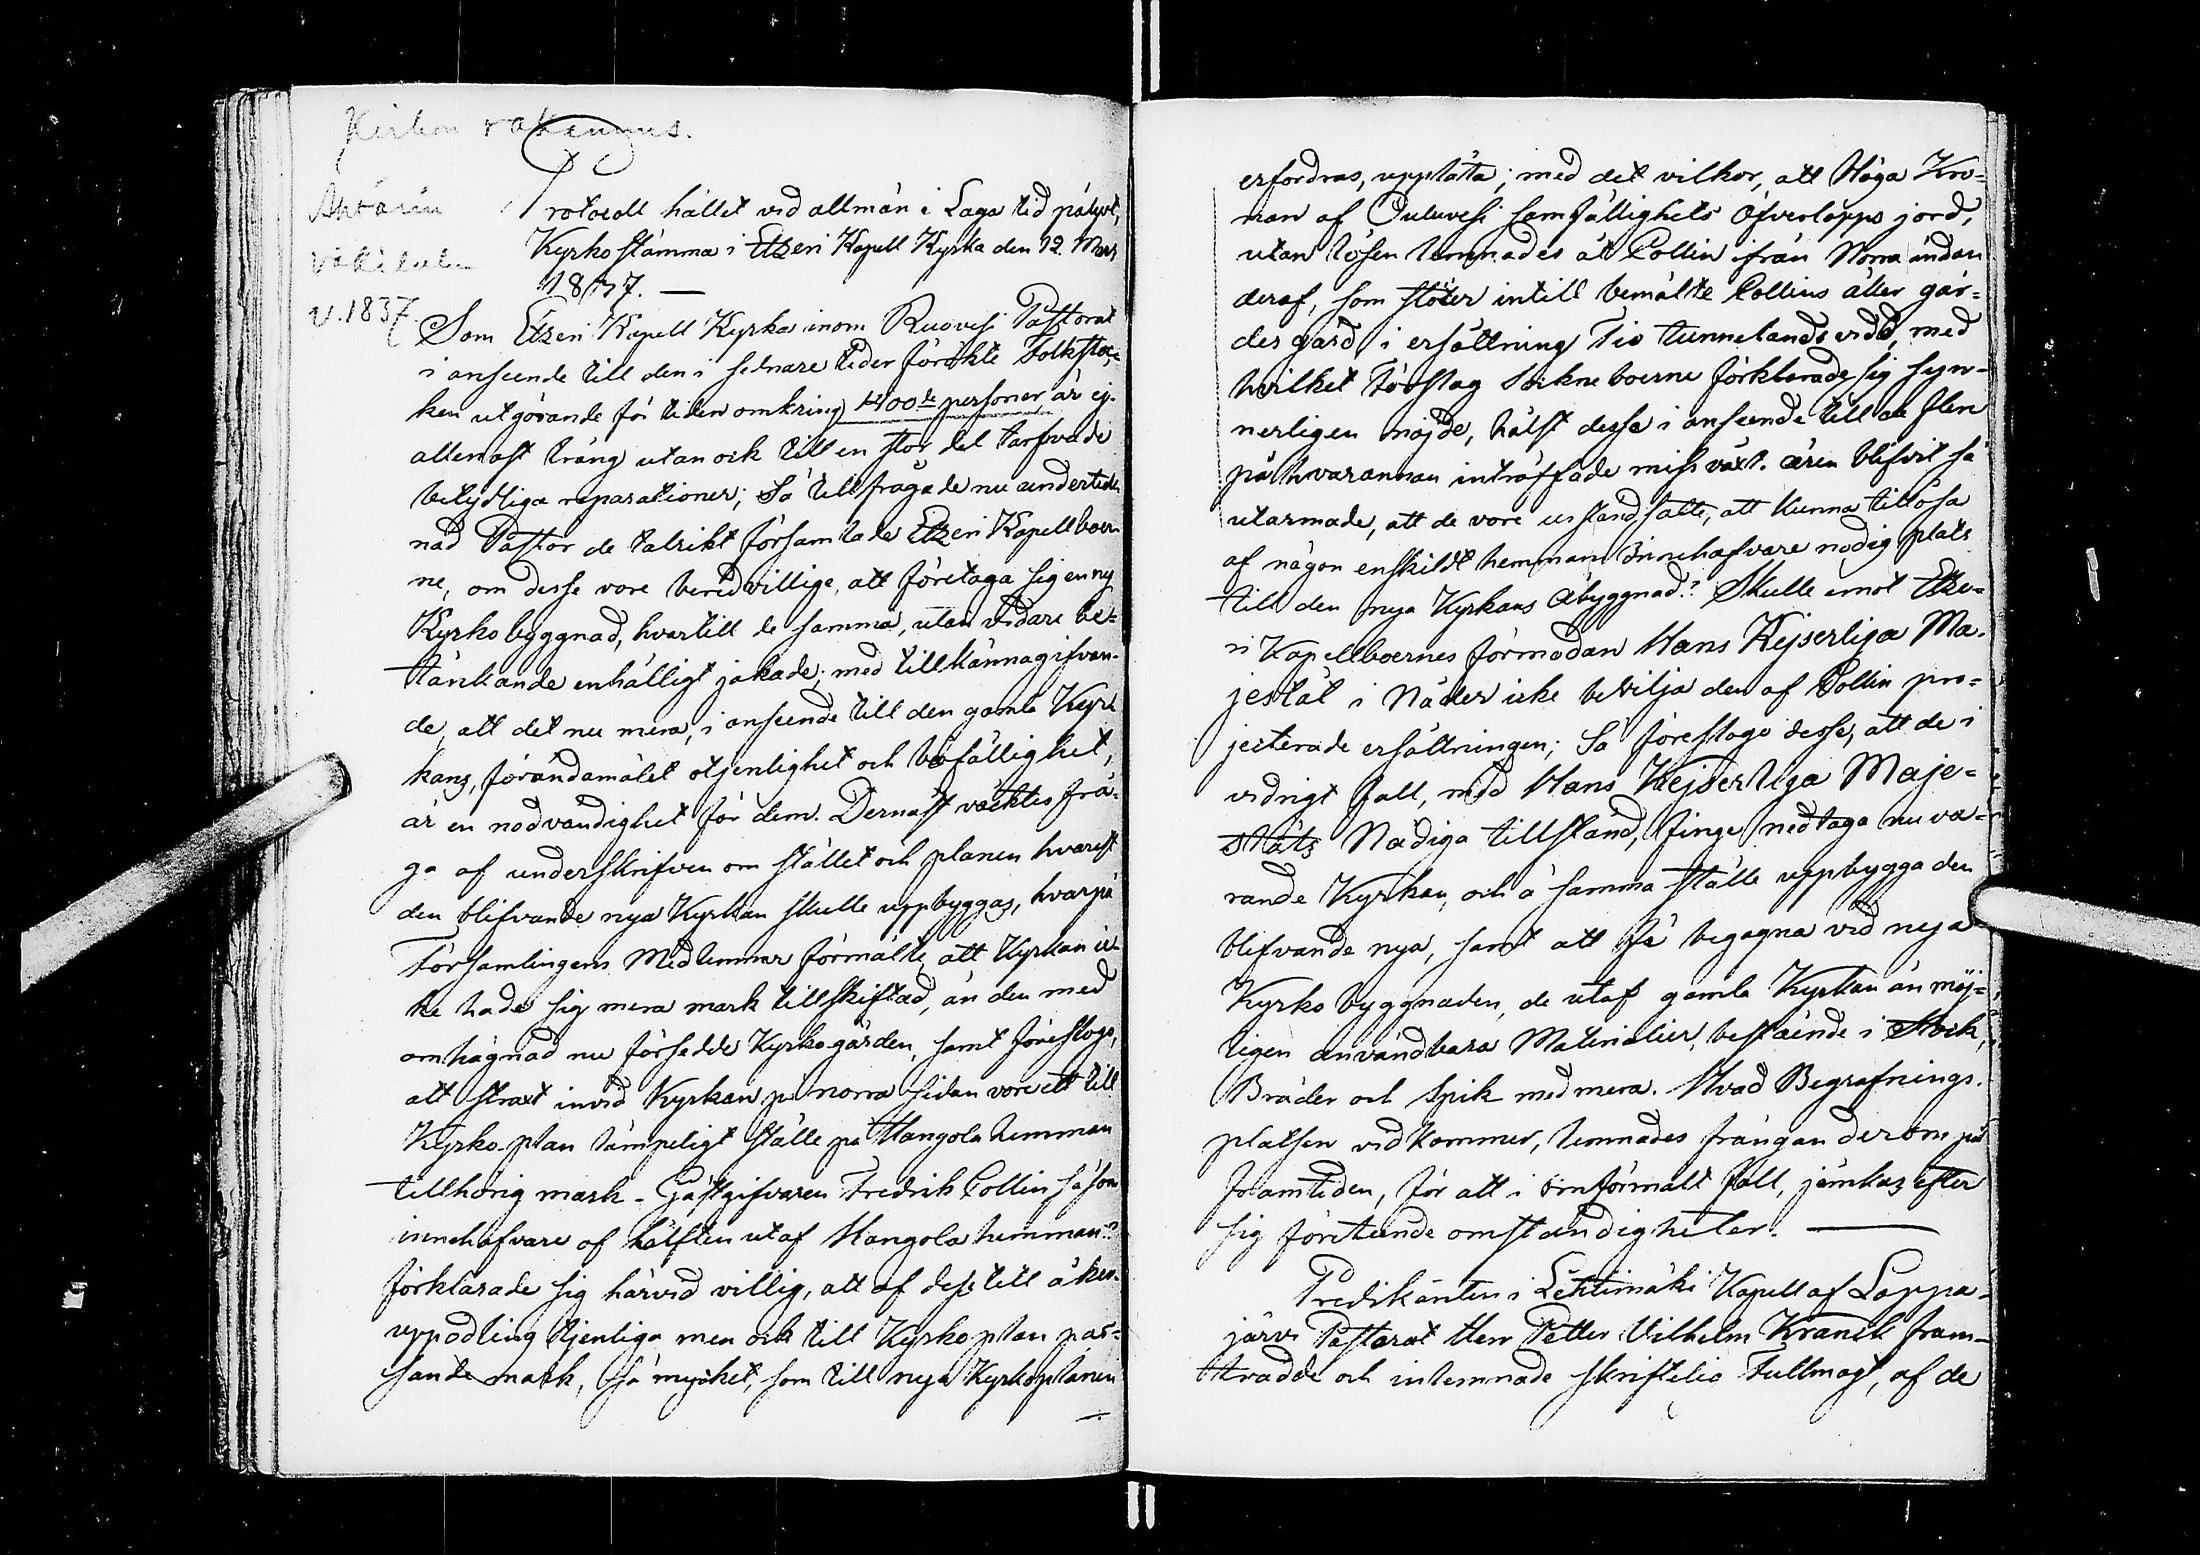 Kirkon rakennus.
Ähtärin
väkiluku
v. 1837
Protocoll hållet vid allmän i Laga tid pålyst,
Kyrkostämma i Etzeri Kapell Kyrka den 12 Mars
1837. —
Som Etzeri Kapell Kyrka inom Ruovesi Pastorat
i anseende till den i sednare tider förökte Folksto-
ken utgörande för tiden omkring personer, är ej
allenast trång utan ock till en stor del tarfvade
betydliga reparationer; Så tillfrågade nu underteck
nad Pastor de talrikt församlade Etzeri Kapellboer
ne, om desse vore beredvillige, att företaga sig en ny
Kyrkobyggnad, hvartill de samma, utan vidare be-
tänkande enhälligt jakade; med tillkännagifvan-
de, att det nu mera, i anseende till den gamla Kyr
kans, för ändamålet otjenlighet och bofällighet,
är en nödvändighet för dem. Dernäst väcktes frå-
ga af underskrifven om stället och planen hvarest
den blifvande nya Kyrkan skulle uppbyggas, hvarpå
Församlingens Medlemmar förmälte, att Kyrkan ic
ke hade sig mera mark tillskiftad, än den med
omhägnad nu försedde Kyrkogården, samt föreslogo,
att straxt invid Kyrkan på norra sidan vore ett till
Kyrko-plan lämpeligt ställe på Hangola hemman
tillhörig mark - Gästgifvaren Fredrik Collin såsom
innehafvare af hälften utaf Hangola hemman
förklarade sig härvid villig, att af dess till åker-
uppodling tjenliga men ock till Kyrkoplan pas-
sande mark, så mycket, som till nya Kyrkoplanen
erfordras, upplåta; med det vilkor, att Höga Kro-
nan af Ouluvesi Samfällighets Öfverlopps jord,
utan lösen lemnades åt Collin ifrån Norra ändan
deraf, som stöter intill bemälte Collins åker gär-
des gård i ersättning Tio tunnelands vidd, med
hvilket Förslag Sockneboerne förklarade sig syn-
nerligen nöjde, hälst desse i anseende till de flere
på hvarannan inträffade missväxt. åren blifvit så
utarmade, att de vore ur stånd satte, att kunna tillösa
af någon enskildt hemmans Innehafvare nödig plats
till den nya Kyrkans Åbyggnad. Skulle emot Etze-
ri Kapellboernes förmodan Hans Kejserliga Ma-
jestät i Nåder icke bevilja den af Collin pro-
jecterade ersättningen; Så föreslogo desse, att de i
vidrigt fall, med Hans Kejserliga Maje-
stäts Nådiga tillstånd, finge nedtaga nu va-
rande Kyrkan, och å samma ställe uppbygga den
blifvande nya, samt att få begagna vid nya
Kyrkobyggnaden, de utaf gamla Kyrkan än möj-
ligen användbara Materialier, bestående i Stock,
Bräder och Spik med mera. Hvad Begrafnings-
platsen vidkommer, lemnades frångan derom på
framtiden, för att i omförmält fall, jämkas efter
sig företeende omständigheter. —
Predikanten i Lehtimäki Kapell af Lappa-
järvi Pastorat Herr Petter Vilhelm Kranck fram-
trädde och inlemnade skriftelig Fullmagt, af de